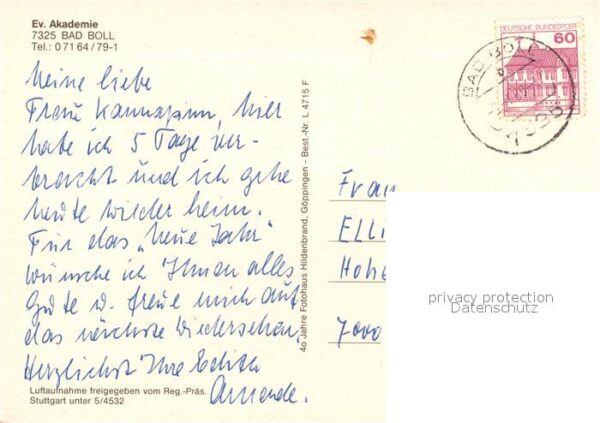 Ev. Akademie
7325 BAD BOLL
Tel.: 0 71 64 / 79-1
Meine liebe
Frau Kannapinn, hier
habe ich 5 Tage ver-
bracht und ich gehe
heute wieder heim.
Für das „Neue Jahr"
wünsche ich Ihnen alles
Gute u. freue mich auf
das nächste Wiedersehen.
Herzlichst Ihre Edith
Amende.
Luftaufnahme freigegeben vom Reg.-Präs.
Stuttgart unter 5/4532
4o Jahre Fotohaus Hildenbrand, Göppingen - Best.-Nr. L 4715 F
DEUTSCHE BUNDESPOST
60
BAD BOLL
Frau
Elli
Hohe
7000
privacy protection
Datenschutz